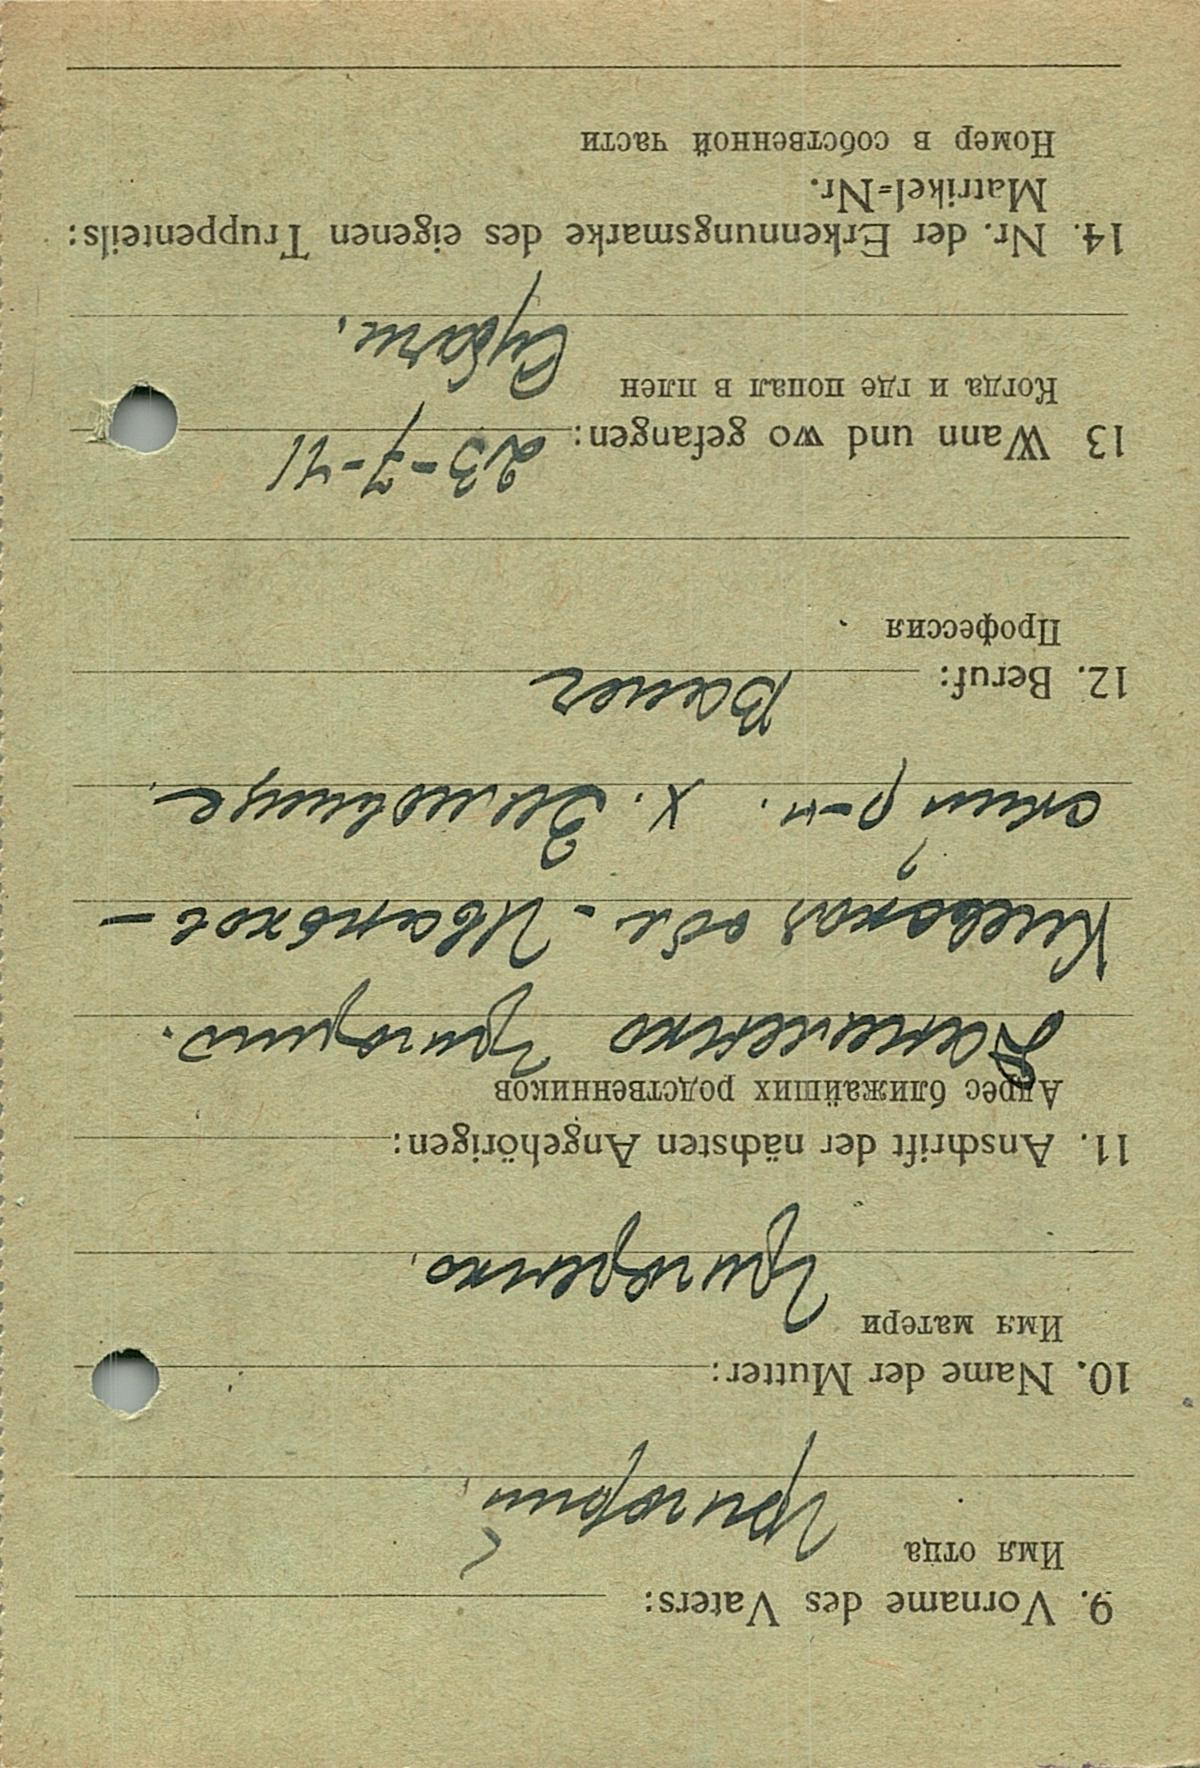 9. Vorname des Vaters:
Имя отца Григорий
10. Name der Mutter:
Имя матери
Григоренко.
11. Anschrift der nächsten Angehörigen:
Адрес ближайших родственников
Даниленко
Киевская обл - Иваньков-
ский р-н. х.
12. Beruf: Bauer
Профессия
13 Wann und wo gefangen: 23-7-41
Когда и где попал в плен
14. Nr. der Erkennungsmarke des eigenen Truppenteils:
Matrikel=Nr.
Номер в собственной части